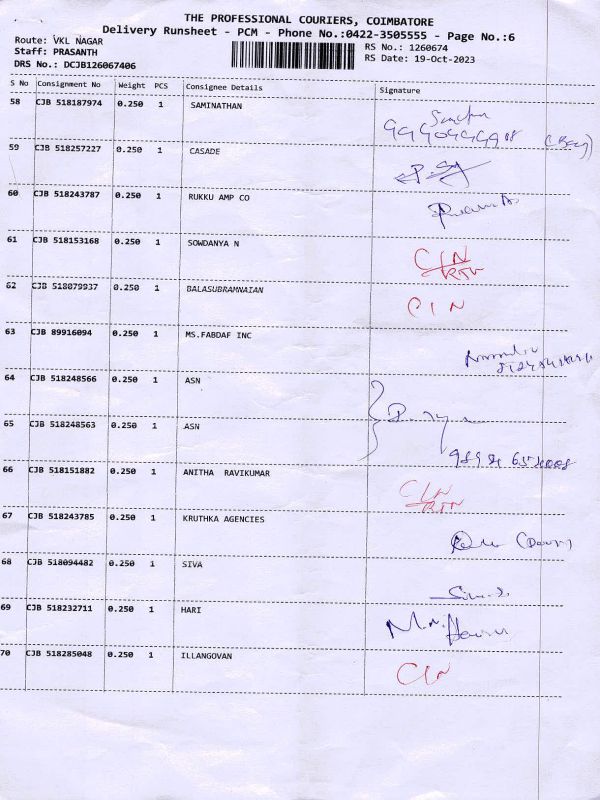 THE PROFESSIONAL COURIERS, COIMBATORE
Delivery Runsheet - PCM - Phone No.:0422-3505555 - Page No.:6
Route: VKL NAGAR
RS No.: 1260674
Staff: PRASANTH
RS Date: 19-Oct-2023
DRS No.: DCJB126067406
S No Consignment No Weight PCS Consignee Details Signature
58 CJB 518187974 0.250 1 SAMINATHAN
59 CJB 518257227 0.250 1 CASADE
60 CJB 518243787 0.250 1 RUKKU AMP CO
61 CJB 518153168 0.250 1 SOWDANYA N CIN
62 CJB 518079937 0.250 1 BALASUBRAMNAIAN CIN
63 CJB 89916094 0.250 1 MS.FABDAF INC
64 CJB 518248566 0.250 1 ASN
65 CJB 518248563 0.250 1 ASN
66 CJB 518151882 0.250 1 ANITHA RAVIKUMAR CIN
67 CJB 518243785 0.250 1 KRUTHKA AGENCIES
68 CJB 518094482 0.250 1 SIVA
69 CJB 518232711 0.250 1 HARI
70 CJB 518285048 0.250 1 ILLANGOVAN CIN